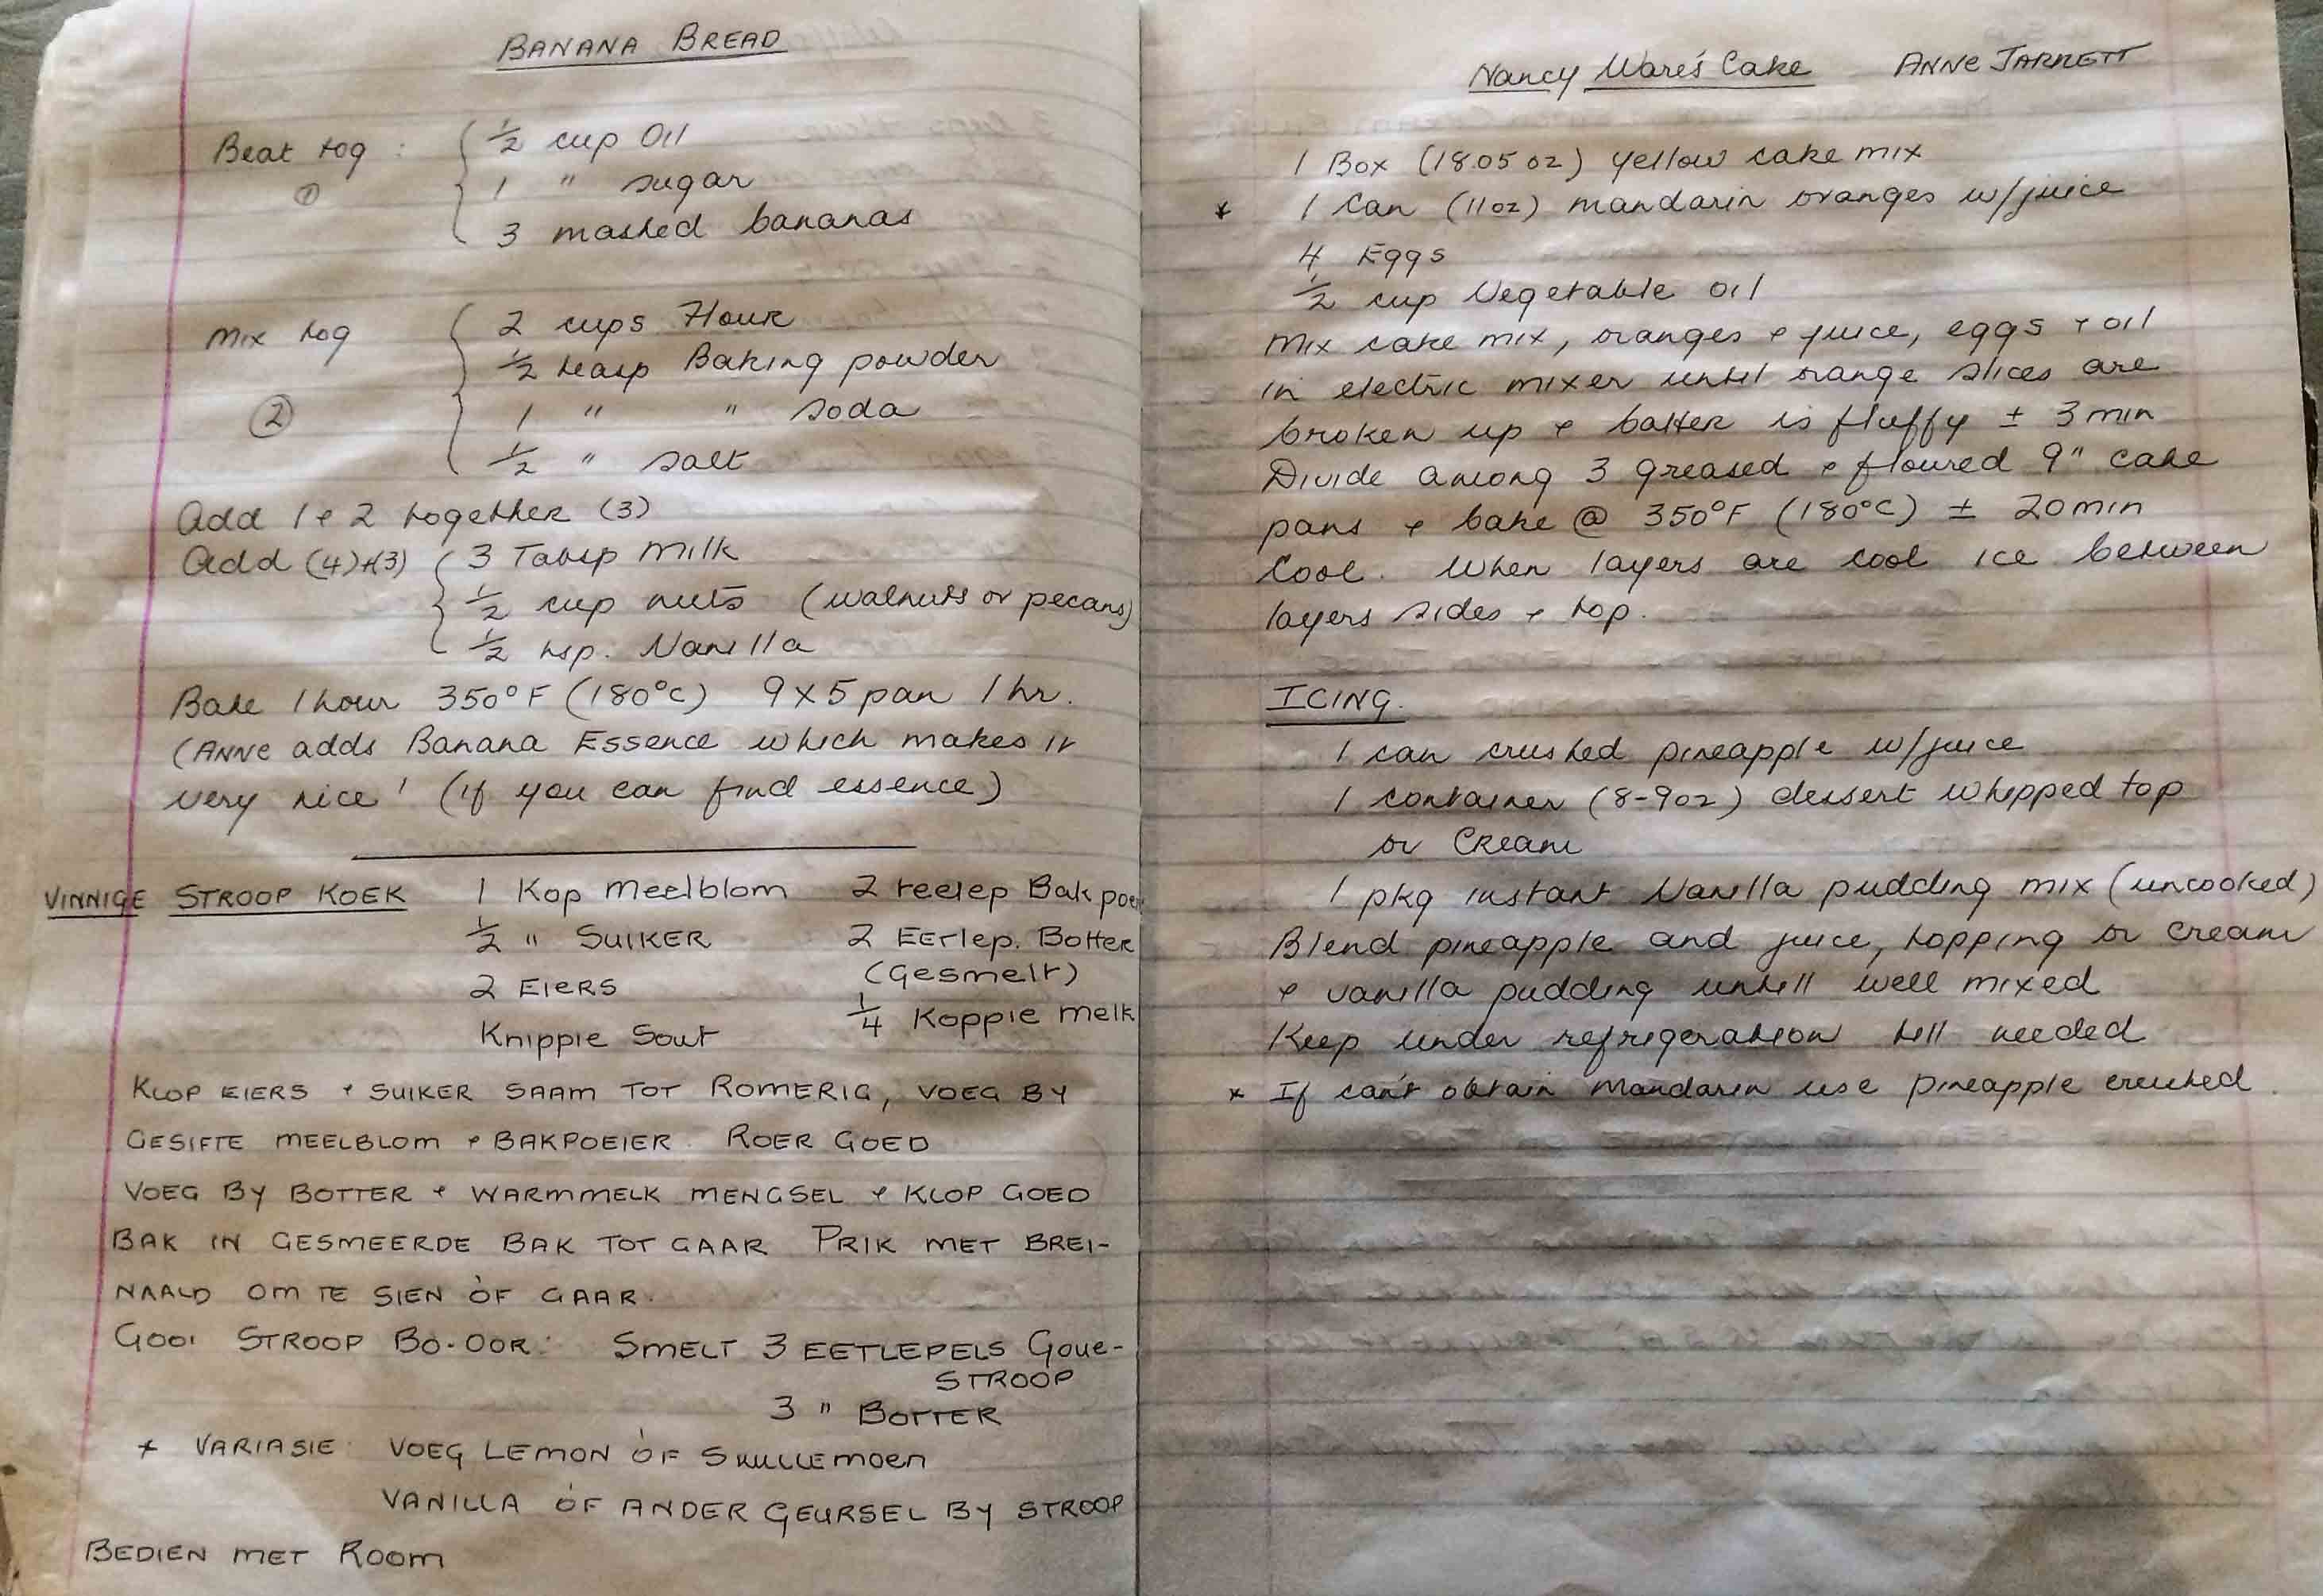 BANANA BREAD
Beat tog : { 1/2 cup Oil
① 1 " sugar
3 mashed bananas
Mix tog { 2 cups Flour
1/2 teasp Baking powder
② 1 " " soda
1/2 " salt
Add 1 & 2 together (3)
Add (4)+(3) { 3 Tabsp Milk
1/2 cup nuts (walnuts or pecans)
1/2 tsp. Vanilla
Bake 1 hour 350°F (180°C) 9 x 5 pan 1 hr.
(ANNE adds Banana Essence which makes it
very nice ' (if you can find essence)
VINNIGE STROOP KOEK 1 Kop Meelblom 2 teelep Bakpoei
1/2 " SUIKER 2 Eetlep. Botter
2 EIERS (Gesmelt)
Knippie Sout 1/4 Koppie melk
KLOP EIERS & SUIKER SAAM TOT ROMERIG, VOEG BY
GESIFTE MEELBLOM & BAKPOEIER. ROER GOED
VOEG BY BOTTER & WARMMELK MENGSEL & KLOP GOED
BAK IN GESMEERDE BAK TOT GAAR PRIK MET BREI-
NAALD OM TE SIEN ÒF GAAR.
GOOI STROOP BO-OOR: SMELT 3 EETLEPELS Goue-
STROOP
3 " BOTTER
* VARIASIE: VOEG LEMON ÒF SUULLEMOEN
VANILLA ÒF ANDER GEURSEL BY STROOP
BEDIEN MET ROOM
Nancy Ware's Cake ANNE JARRETT
1 Box (18.05 oz) yellow cake mix
* 1 Can (11 oz) mandarin oranges w/juice
4 Eggs
1/2 cup Vegetable oil
Mix cake mix, oranges & juice, eggs & oil
in electric mixer until orange slices are
broken up & batter is fluffy ± 3 min
Divide among 3 greased & floured 9" cake
pans & bake @ 350°F (180°C) ± 20 min
Cool. When layers are cool ice between
layers sides & top.
ICING.
1 can crushed pineapple w/juice
1 container (8-9 oz) dessert whipped top
or Cream
1 pkg instant Vanilla pudding mix (uncooked)
Blend pineapple and juice, topping or cream
& vanilla pudding untill well mixed
Keep under refrigeration till needed
* If can't obtain Mandarin use pineapple crushed.